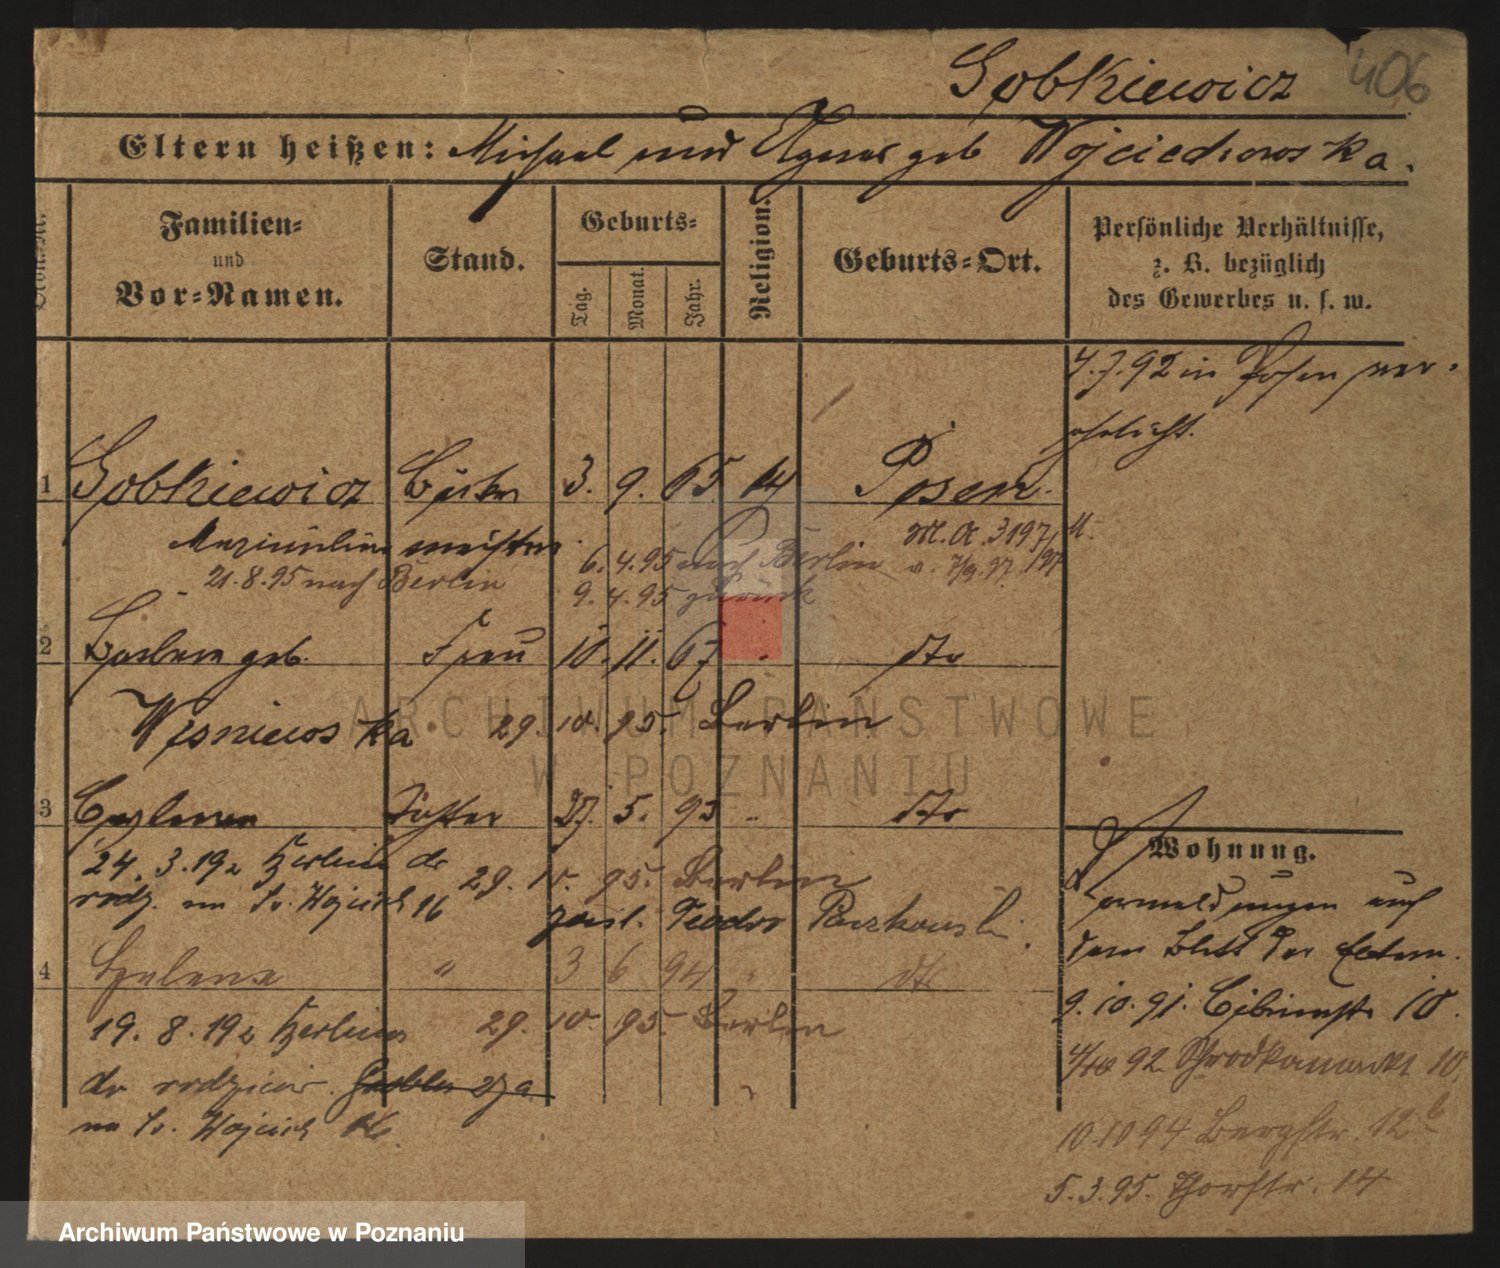 Gobkiewicz 406
Eltern heißen: Michael und Agnes geb Wojciechowska.
Familien- und Vor-Namen.
Stand.
Geburts-
Tag. Monat. Jahr.
Religion.
Geburts-Ort.
Persönliche Verhältnisse,
z. B. bezüglich
des Gewerbes u. s. w.
4.7.92 in Posen ver-
ehelicht.
1 Gobkiewicz 3. 9. 65 Posen.
Maximilian meister
21.8.95 nach Berlin
6.4.95 nach Berlin
9.4.95 zurück
M.A. 3197/97
2 Barbara geb. Frau 10. 11. 67 dto
29. 10. 95. Berlin
3 Tochter 27. 5. 93 " dto
24. 3. 19 z Berlina do
rodz. na Św. Wojciech 16
29. 10. 95. Berlin
Teodor
4 Helena " 3 6 94 " dto
19. 8. 19 z Berlina
29. 10. 95. Berlin
do rodziców
na Św. Wojciech 16.
Wohnung.
Vormeldungen auf
dem Blatt der Eltern.
9.10.91. 10.
4/10 92. Schrodkamarkt 10.
10.10 94 Bergstr. 12b
5.3.95. Thorstr. 14
ARCHIWUM PAŃSTWOWE
W POZNANIU
Archiwum Państwowe w Poznaniu